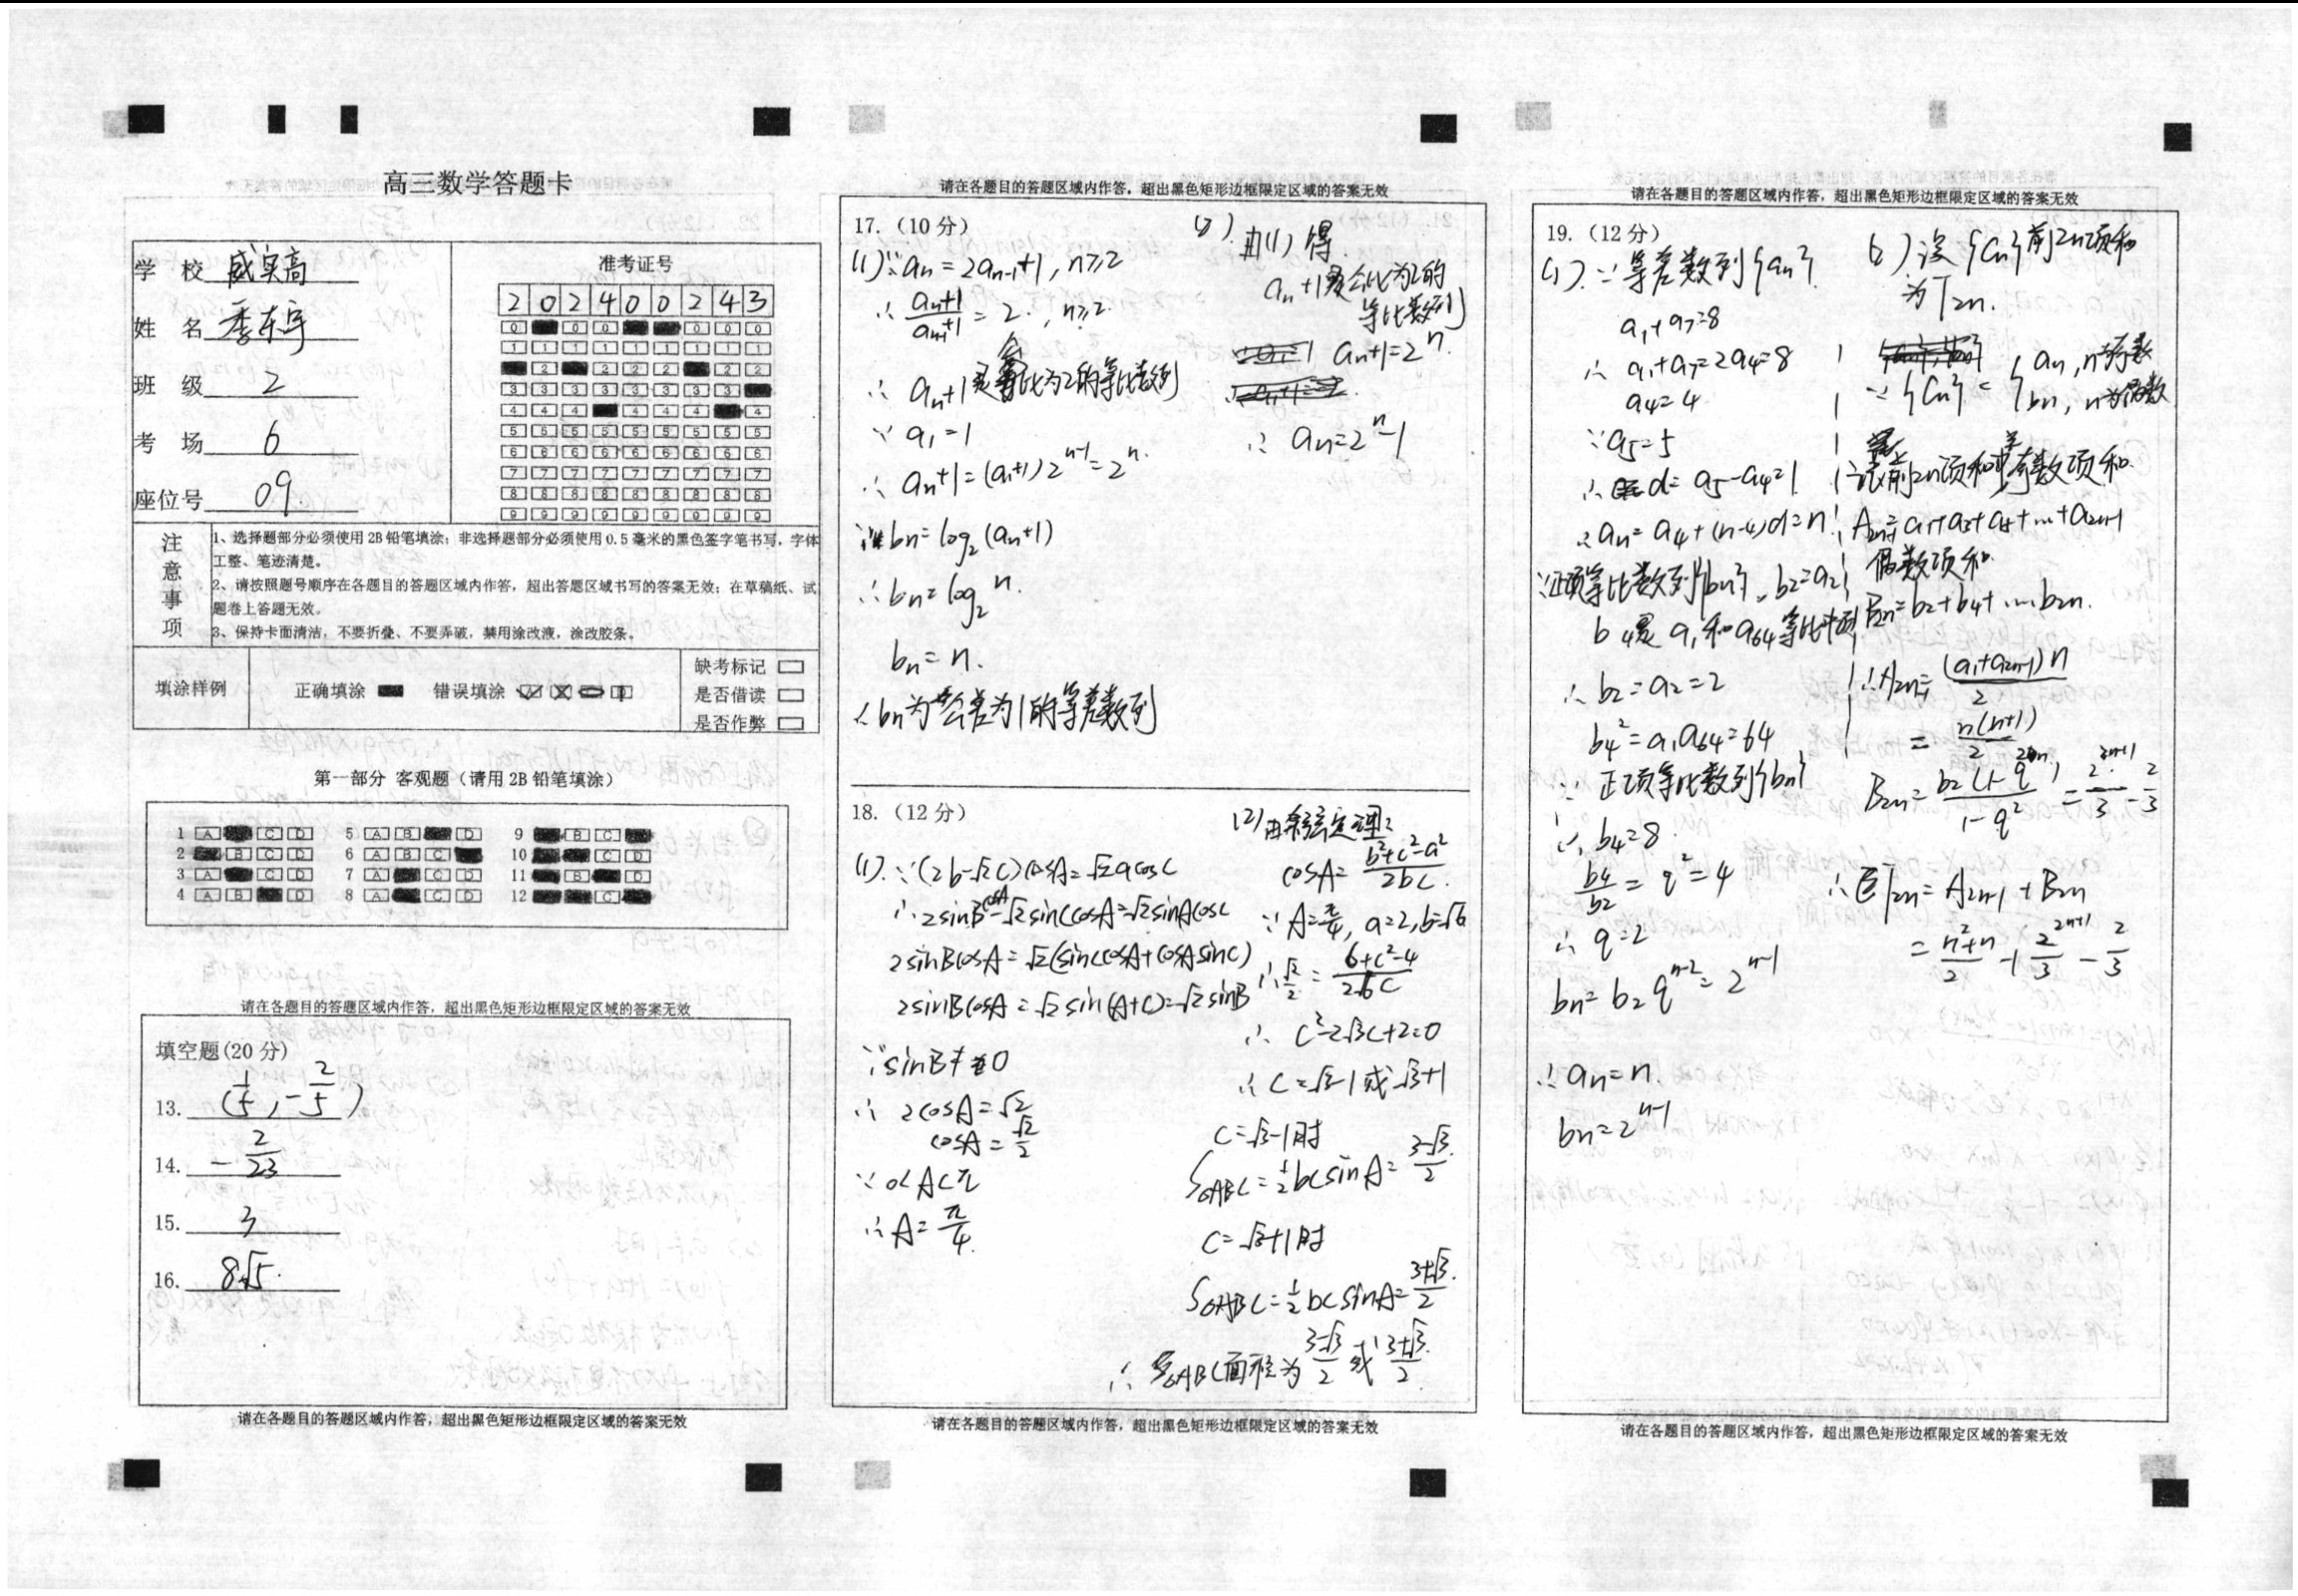 高三数学答题卡
学 校 威实高
姓 名 季东宇
班 级 2
考 场 6
座位号 09
准考证号
2 0 2 4 0 0 2 4 3
注意事项
1、选择题部分必须使用 2B 铅笔填涂；非选择题部分必须使用 0.5 毫米的黑色签字笔书写，字体
工整、笔迹清楚。
2、请按照题号顺序在各题目的答题区域内作答，超出答题区域书写的答案无效；在草稿纸、试
题卷上答题无效。
3、保持卡面清洁，不要折叠、不要弄破，禁用涂改液，涂改胶条。
填涂样例 正确填涂 错误填涂
缺考标记
是否借读
是否作弊
第一部分 客观题（请用 2B 铅笔填涂）
1 A C D 5 A B D 9 B C
2 B C D 6 A B C 10 C D
3 A C D 7 A C D 11 B D
4 A B D 8 A C D 12 C
请在各题目的答题区域内作答，超出黑色矩形边框限定区域的答案无效
填空题(20 分)
13. (1/5, -2/5)
14. -2/23
15. 3
16. 8√5.
请在各题目的答题区域内作答，超出黑色矩形边框限定区域的答案无效
请在各题目的答题区域内作答，超出黑色矩形边框限定区域的答案无效
17.（10 分）
(1) ∵ an = 2an-1+1, n≥2
∴ (an+1)/(an-1+1) = 2, n≥2.
∴ an+1是公比为2的等比数列
∵ a1=1
∴ an+1=(a1+1)2^(n-1)=2^n.
∵ bn=log2(an+1)
∴ bn=log2^n.
bn=n.
∴ bn为公差为1的等差数列
(2). 由(1)得
an+1是公比为2的
等比数列
an+1=2^n.
∴ an=2^n-1
18.（12 分）
(1). ∵(2b-√2c)cosA=√2acosC
∴2sinBcosA-√2sinCcosA=√2sinAcosC
2sinBcosA=√2(sinCcosA+cosAsinC)
2sinBcosA=√2sin(A+C)=√2sinB
∵sinB≠0
∴ 2cosA=√2
cosA=√2/2
∵ 0<A<π
∴ A=π/4.
(2)由余弦定理:
cosA=(b²+c²-a²)/2bc.
∵ A=π/4, a=2, b=√6
∴ √2/2=(6+c²-4)/2√6c
∴ c²-2√3c+2=0
∴ c=√3-1或√3+1
c=√3-1时
S△ABC=1/2bcsinA=(3-√3)/2.
c=√3+1时
S△ABC=1/2bcsinA=(3+√3)/2.
∴ S△ABC面积为(3-√3)/2或(3+√3)/2.
请在各题目的答题区域内作答，超出黑色矩形边框限定区域的答案无效
请在各题目的答题区域内作答，超出黑色矩形边框限定区域的答案无效
19.（12 分）
(1). ∵等差数列{an}.
a1+a7=8
∴ a1+a7=2a4=8
a4=4
∵a5=5
∴ d=a5-a4=1
∴an=a4+(n-4)d=n
∵正项等比数列{bn}, b2=a2
b4是a1和a64等比中项
∴ b2=a2=2
b4²=a1a64=64
∵ 正项等比数列{bn}
∴ b4=8.
b4/b2=q²=4
∴ q=2
bn=b2q^(n-2)=2^(n-1)
∴ an=n.
bn=2^(n-1)
(2)设{Cn}前2n项和
为T2n.
∵{Cn}={an, n为奇数
bn, n为偶数
设前2n项和中奇数项和.
A2n-1=a1+a3+a5+…+a2n-1
偶数项和.
B2n=b2+b4+…b2n.
∴A2n-1=(a1+a2n-1)n/2
=n(n+1)/2
B2n=b2(1-q^2n)/(1-q²)=2^(2n+1)/3-2/3
∴T2n=A2n-1+B2n
=(n²+n)/2+2^(2n+1)/3-2/3
请在各题目的答题区域内作答，超出黑色矩形边框限定区域的答案无效